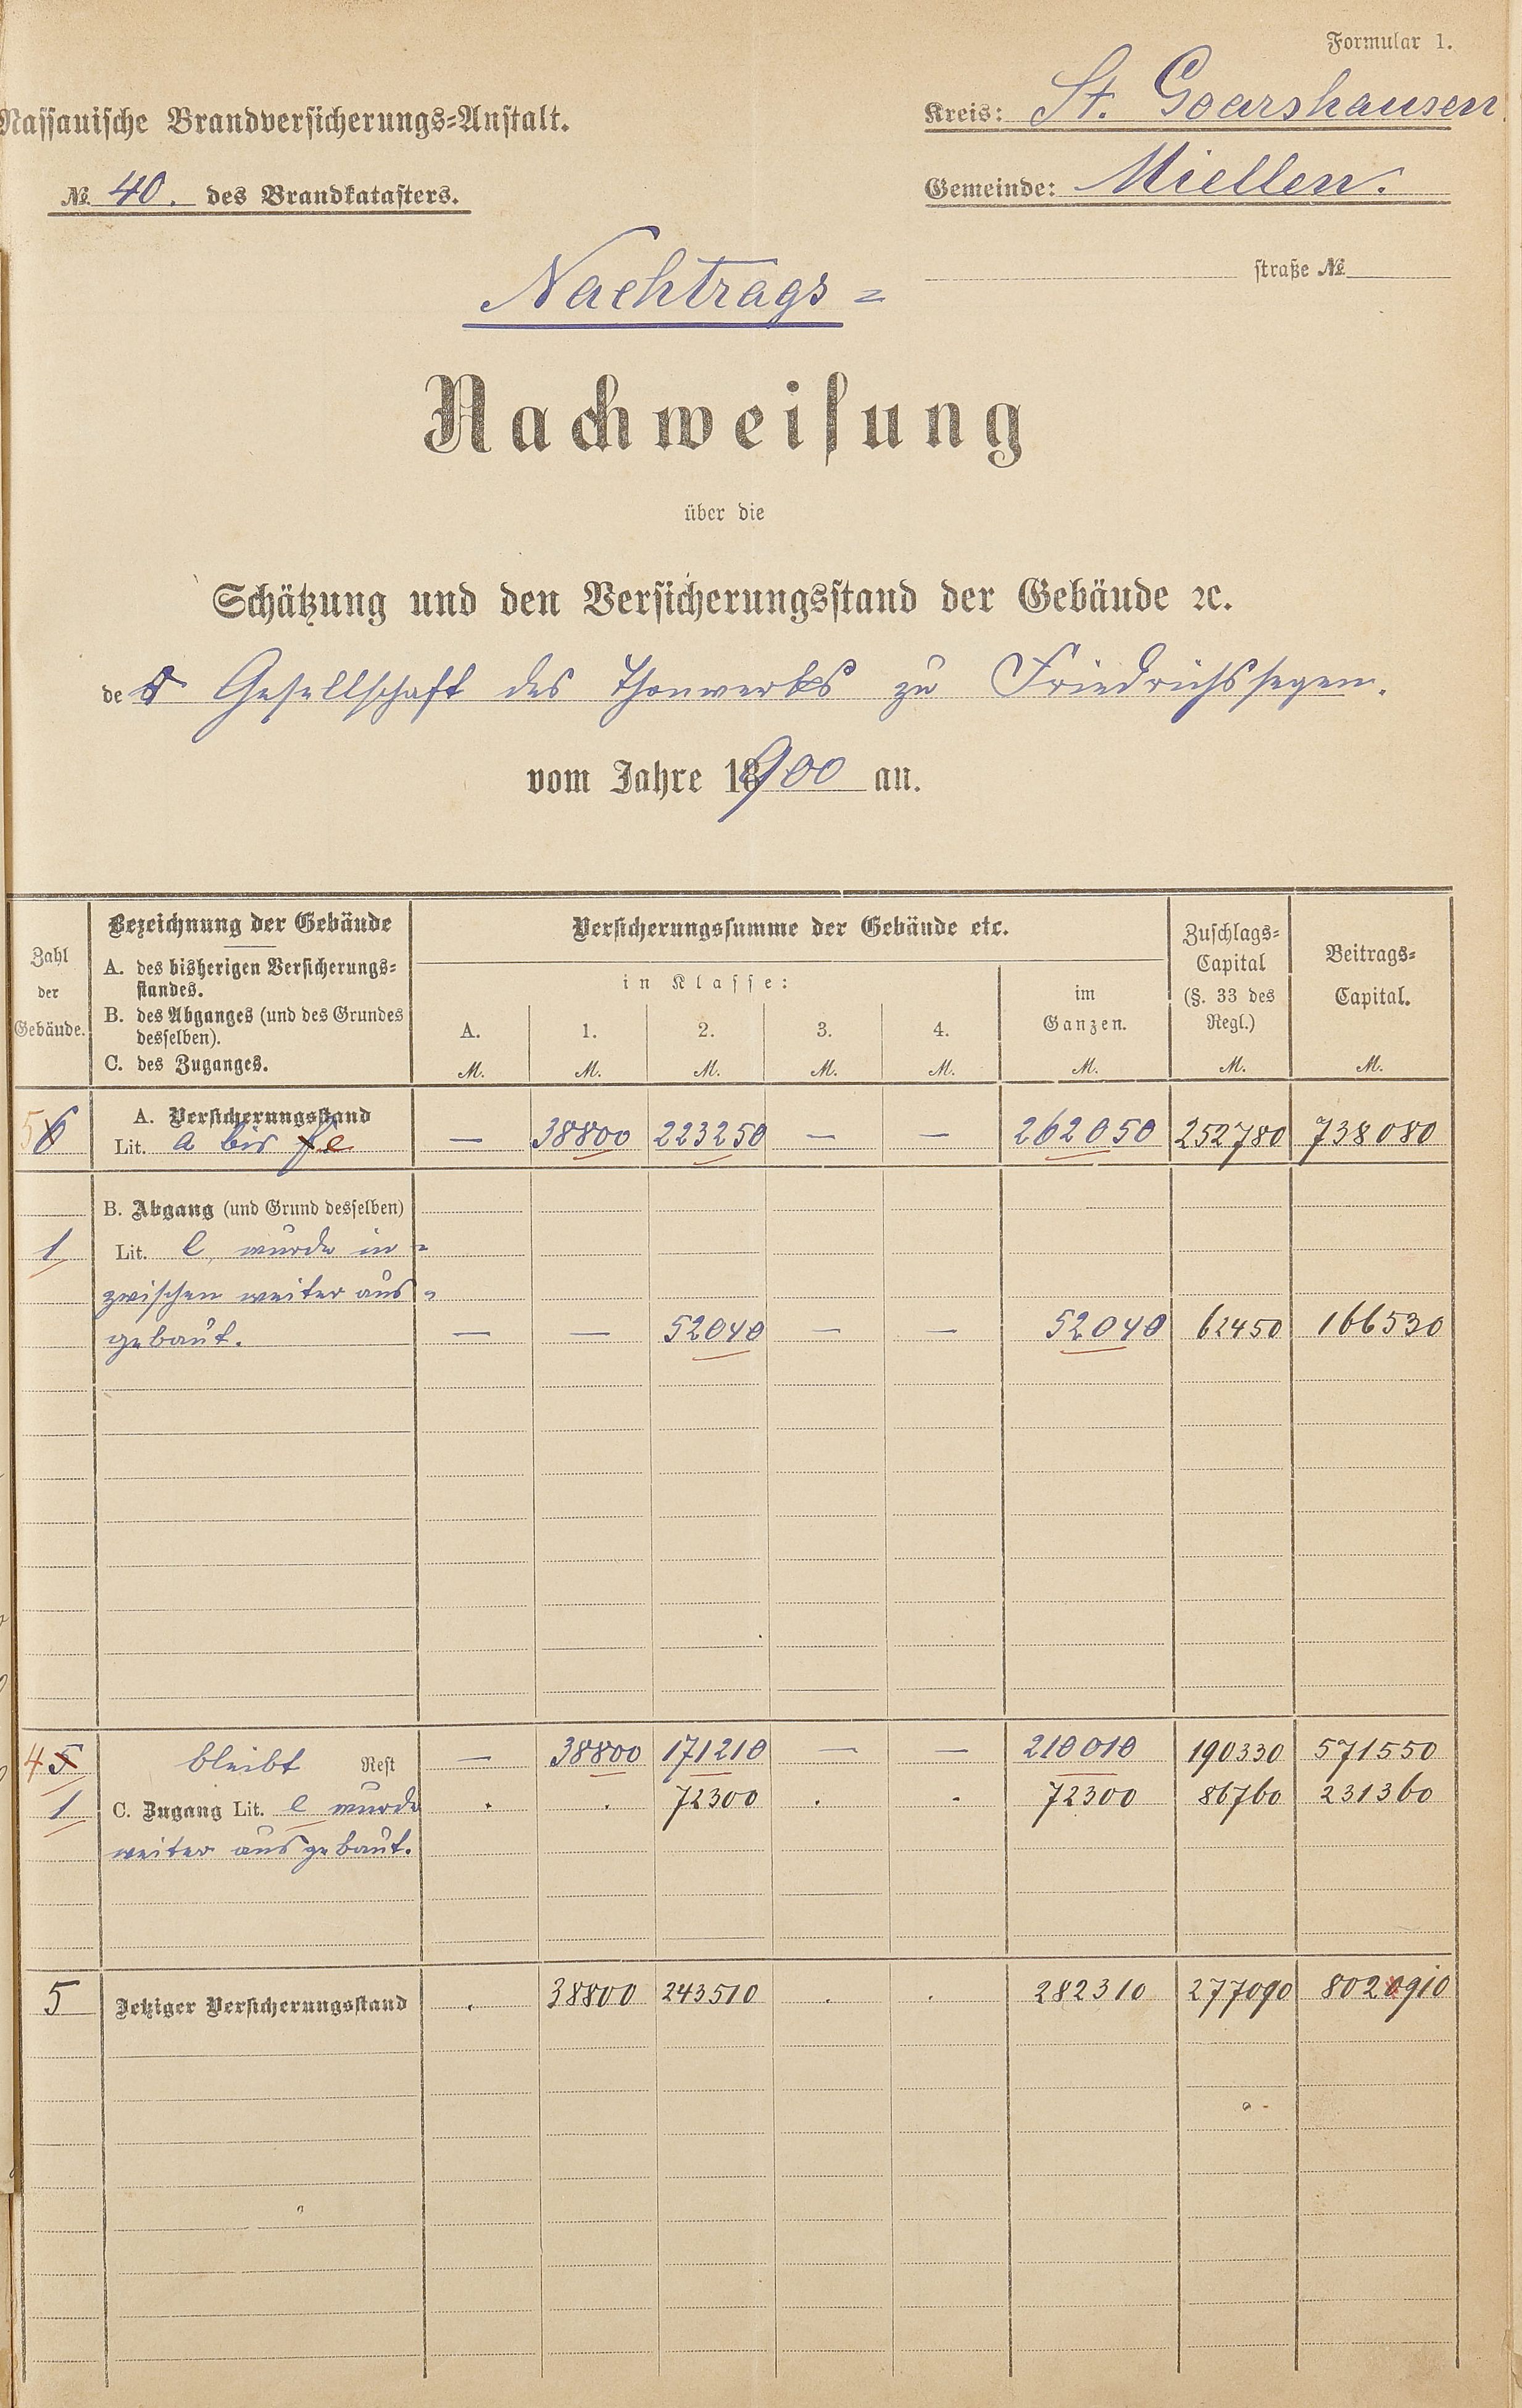 Formular 1.
Nassauische Brandversicherungs-Anstalt.
Kreis: St. Goarshausen.
№ 40. des Brandkatasters.
Gemeinde: Miellen.
straße №
Nachtrags =
Nachweisung
über die
Schätzung und den Versicherungsstand der Gebäude ꝛc.
der Gesellschaft des Thonwerks zu Friedrichssegen.
vom Jahre 18900 an.
Zahl der Gebäude.
Bezeichnung der Gebäude
A. des bisherigen Versicherungs=
standes.
B. des Abganges (und des Grundes
desselben).
C. des Zuganges.
Versicherungssumme der Gebäude etc.
in Klasse:
A. 1. 2. 3. 4.
M. M. M. M. M.
im
Ganzen.
M.
Zuschlags=
Capital
(§. 33 des
Regl.)
M.
Beitrags=
Capital.
M.
A. Versicherungsstand
56 Lit. a bis f e — 38800 223250 — — 262050 252780 738080
B. Abgang (und Grund desselben)
1 Lit. e, wurde in =
zwischen weiter aus =
gebaut. — — 52040 — — 52040 62450 166530
45 bleibt Rest — 38800 171210 — — 210010 190330 571550
1 C. Zugang Lit. e wurde . . 72300 . . 72300 86760 231360
weiter ausgebaut.
5 Jetziger Versicherungsstand . 38800 243510 . . 282310 277090 802910